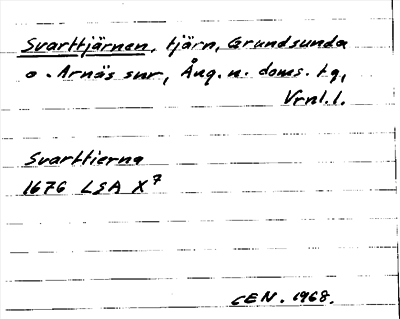 Svarttjärnen, tjärn, Grundsunda
o. Arnäs snr, Ång. n. doms. tg,
Vrnl. l.
Svarttierna
1676 LSA X7
CEN. 1968.